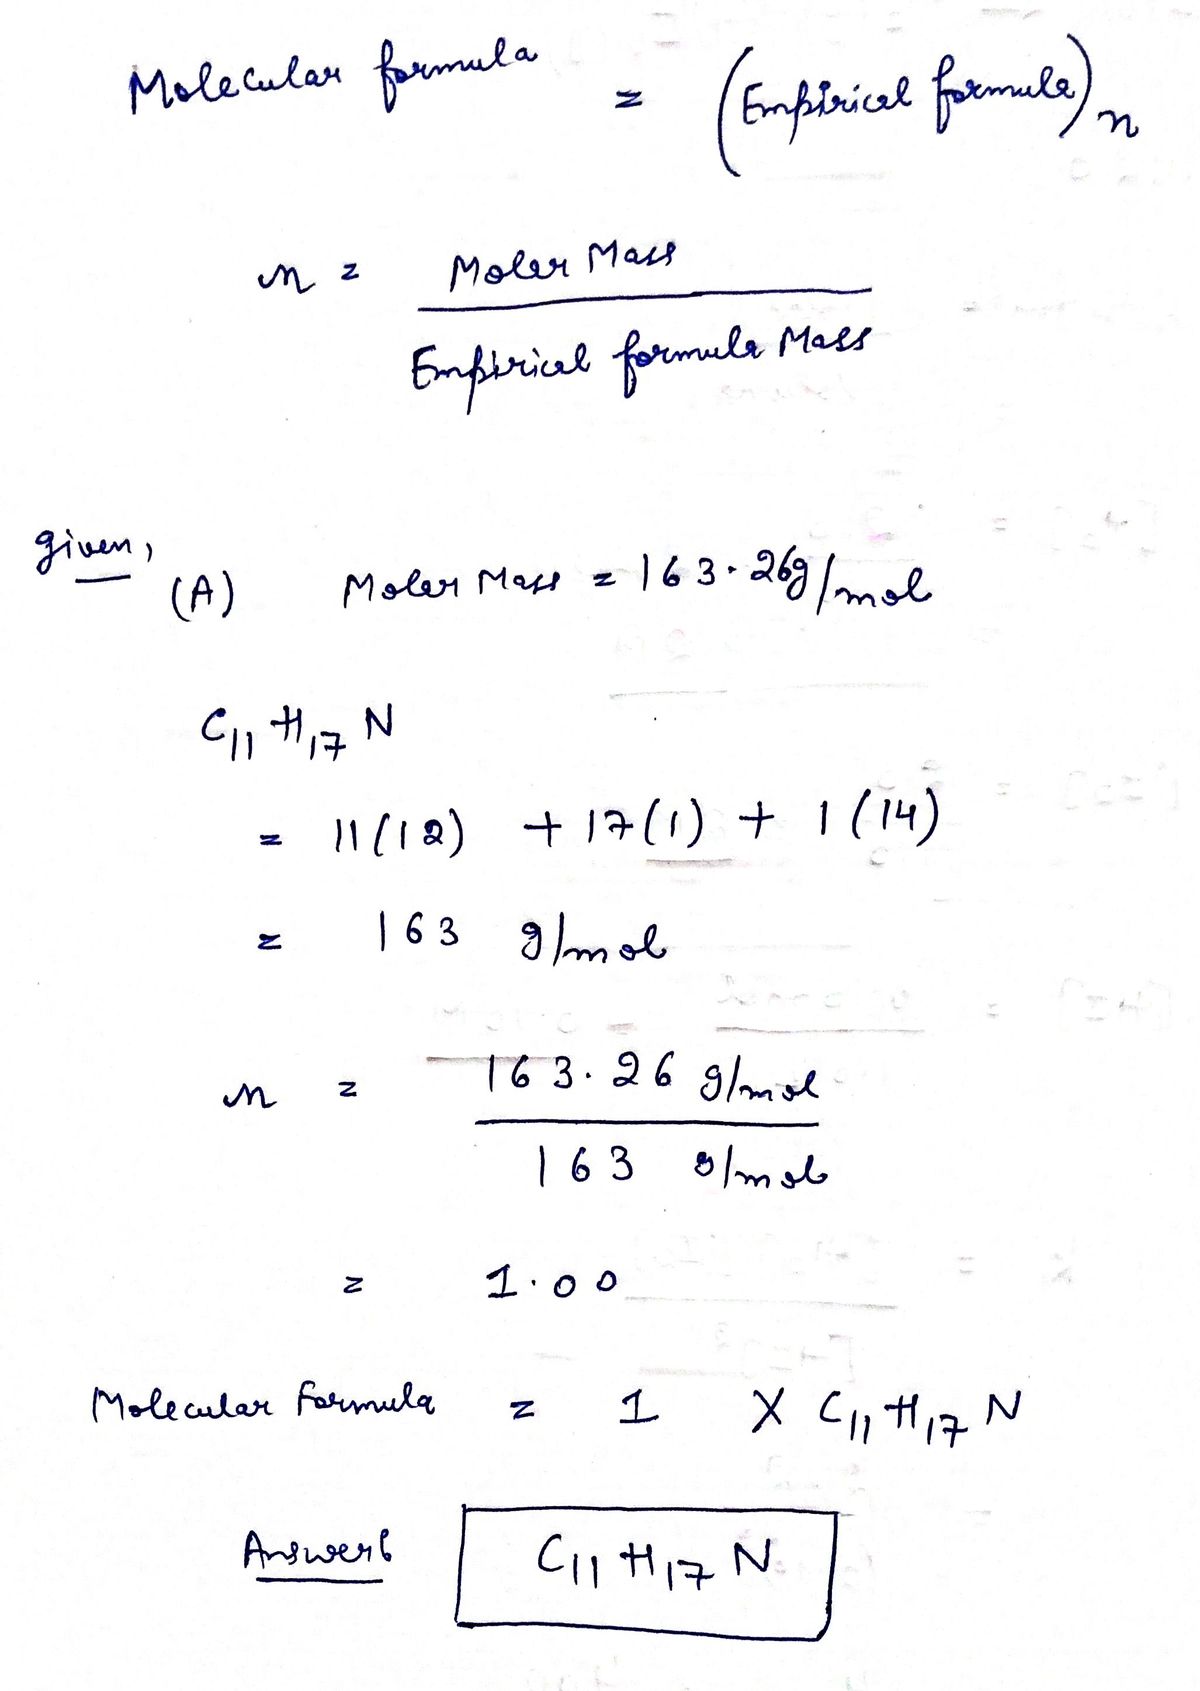 Molecular formula = (Empirical formula)n
n = Molar Mass
Empirical formula Mass
given,
(A) Molar Mass = 163.26g/mol
C11 H17 N
= 11(12) + 17(1) + 1(14)
= 163 g/mol
n = 163.26 g/mol
163 g/mol
= 1.00
Molecular Formula = 1 X C11 H17 N
Answer C11 H17 N